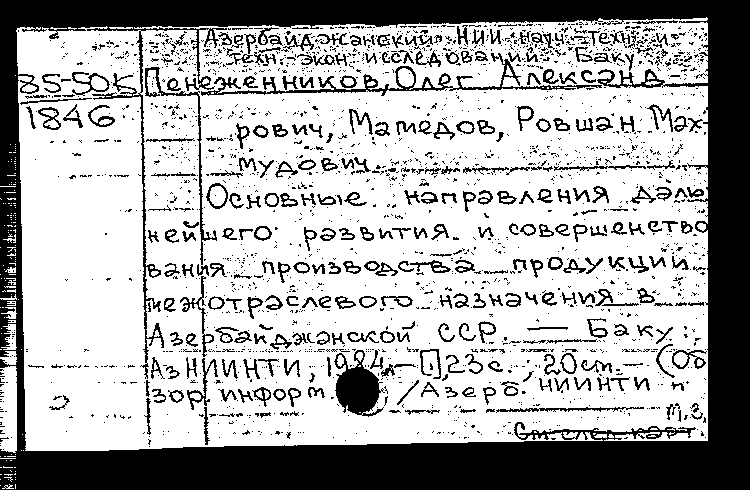 Азербайджанский НИИ науч.-техн. и
техн.-экон. исследований. Баку
85-50К Пенеженников, Олег Александ-
1846
рович, Мамедов, Ровшан Мах-
мудович.
Основные направления даль
нейшего развития и совершенство
вания производства продукции
межотраслевого назначения в
Азербайджанской ССР. — Баку:
АзНИИНТИ, 1984. — [.], 23 с.; 20 см. — (Об
зор. информ. / Азерб. НИИНТИ
См. след. карт.